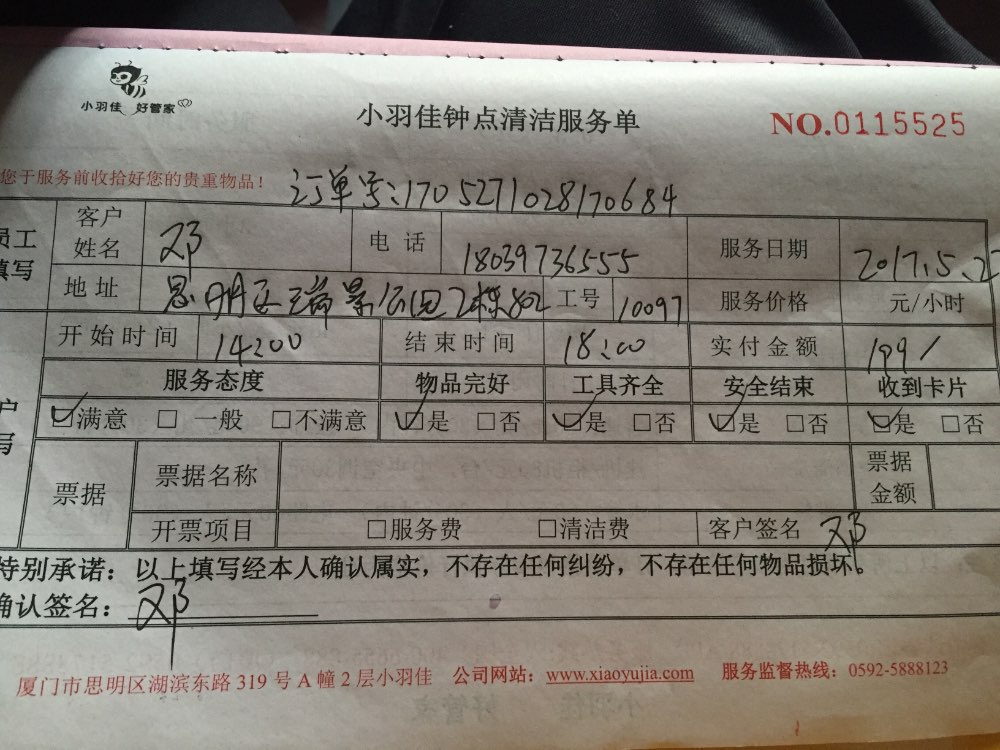 小羽佳 好管家
小羽佳钟点清洁服务单
NO.0115525
您于服务前收拾好您的贵重物品！
订单号:1705271028170684
员工填写
客户姓名 邓 电话 18039736555 服务日期 2017.5.2
地址 思明区瑞景公园2栋802 工号 10097 服务价格 元/小时
开始时间 14:00 结束时间 18:00 实付金额 199/
服务态度 物品完好 工具齐全 安全结束 收到卡片
☑满意 □一般 □不满意 ☑是 □否 ☑是 □否 ☑是 □否 ☑是 □否
户写
票据 票据名称 票据金额
开票项目 □服务费 □清洁费 客户签名 邓
特别承诺：以上填写经本人确认属实，不存在任何纠纷，不存在任何物品损坏。
确认签名：邓
厦门市思明区湖滨东路 319 号 A 幢 2 层小羽佳 公司网站：www.xiaoyujia.com 服务监督热线：0592-5888123